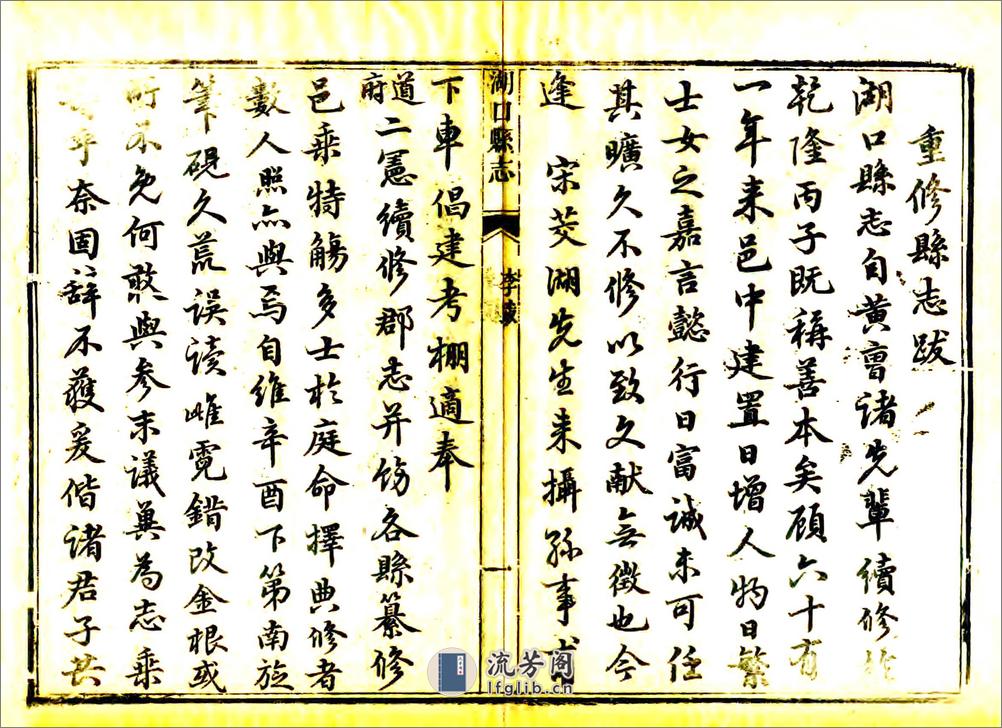 重修縣志跋
湖口縣志自黃曹諸先輩續修於
乾隆丙子既稱善本矣顧六十有
一年來邑中建置日增人物日繁
士女之嘉言懿行日富誠未可任
其曠久不修以致文献無徵也今
逢 宋茭湖先生来攝縣事
湖口縣志
李跋
下車倡建考棚適奉
道府二憲續修郡志并飭各縣纂修
邑乘特觴多士於庭命擇典修者
數人照亦與焉自維辛酉下第南旋
筆硯久荒误读雌霓錯改金根或
所不免何敢與参末議兾為志乘
乎奈固辭不獲爰偕诸君子共
流芳阁
lfglib.cn